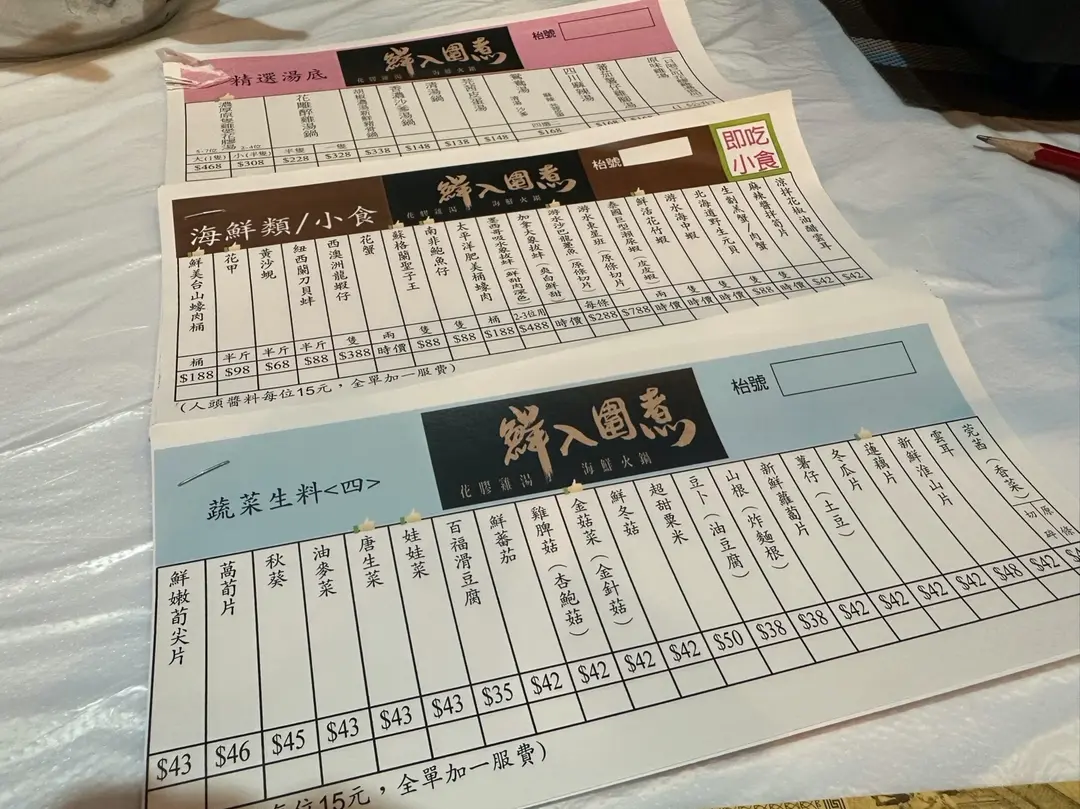 精選湯底
鮮入圍煮
花膠雞湯 海鮮火鍋
枱號
花雕醉雞湯鍋
清湯鍋
鴛鴦湯
四川麻辣湯
原味雞湯
5-7位
3-4位
大(1隻)
小(半隻)
半隻
一隻
$468
$308
$228
$328
$338
$148
$138
$148
$168
海鮮類/小食
鮮入圍煮
花膠雞湯 海鮮火鍋
枱號
即吃
小食
鮮美台山蠔肉桶
花甲
黃沙蜆
紐西蘭刀貝蚌
西澳洲龍蝦仔
花蟹
蘇格蘭聖子王
南非鮑魚仔
太平洋肥美桶蠔肉
墨西哥吸水象拔蚌(鮮甜肉深色)
加拿大象拔蚌(爽白鮮甜)
游水沙巴龍躉魚(原條切片)
游水東星斑(原條切片)
泰國巨型瀨尿蝦(皮皮蝦)
鮮活花竹蝦
游水海中蝦
北海道野生元貝
生劏羔蟹/肉蟹
麻辣醬拌筍片
涼拌花椒油醋雲耳
桶
半斤
半斤
半斤
隻
兩
隻
隻
桶
2-3位用
每條
兩
隻
隻
隻
$188
$98
$68
$88
$388
時價
$88
$88
$188
$488
時價
$288
$788
時價
時價
時價
$88
時價
$42
$42
(人頭醬料每位15元,全單加一服費)
蔬菜生料<四>
鮮入圍煮
花膠雞湯 海鮮火鍋
枱號
鮮嫩荀尖片
萵荀片
秋葵
油麥菜
唐生菜
娃娃菜
百福滑豆腐
鮮蕃茄
雞脾菇(杏鮑菇)
金菇菜(金針菇)
鮮冬菇
超甜粟米
豆卜(油豆腐)
山根(炸麵根)
新鮮蘿蔔片
薯仔(土豆)
冬瓜片
蓮藕片
新鮮淮山片
雲耳
莞茜(香菜)
切碎
原條
$43
$46
$45
$43
$43
$43
$35
$42
$42
$42
$42
$50
$38
$38
$42
$42
$42
$42
$48
$42
位15元,全單加一服費)